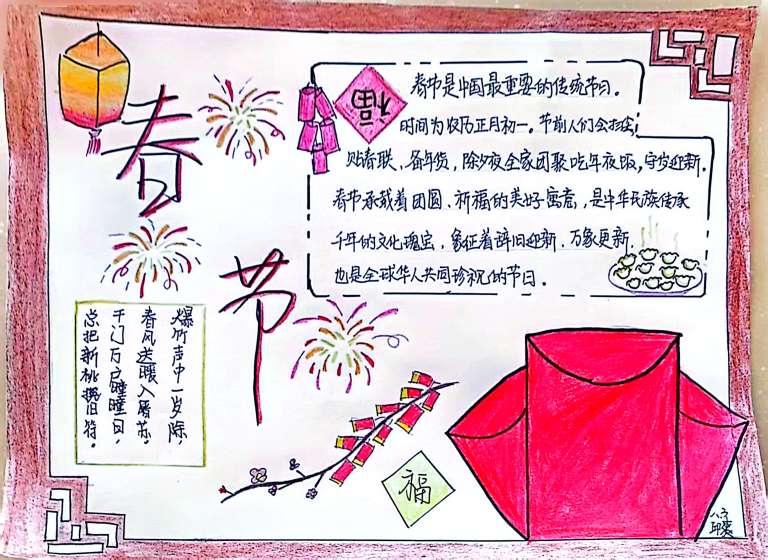 春节
福
春节是中国最重要的传统节日。
时间为农历正月初一。节前人们会扫尘
贴春联、备年货，除夕夜全家团聚吃年夜饭，守岁迎新。
春节承载着团圆、祈福的美好寓意，是中华民族传承
千年的文化瑰宝，象征着辞旧迎新、万象更新，
也是全球华人共同珍视的节日。
爆竹声中一岁除，
春风送暖入屠苏。
千门万户曈曈日，
总把新桃换旧符。
福